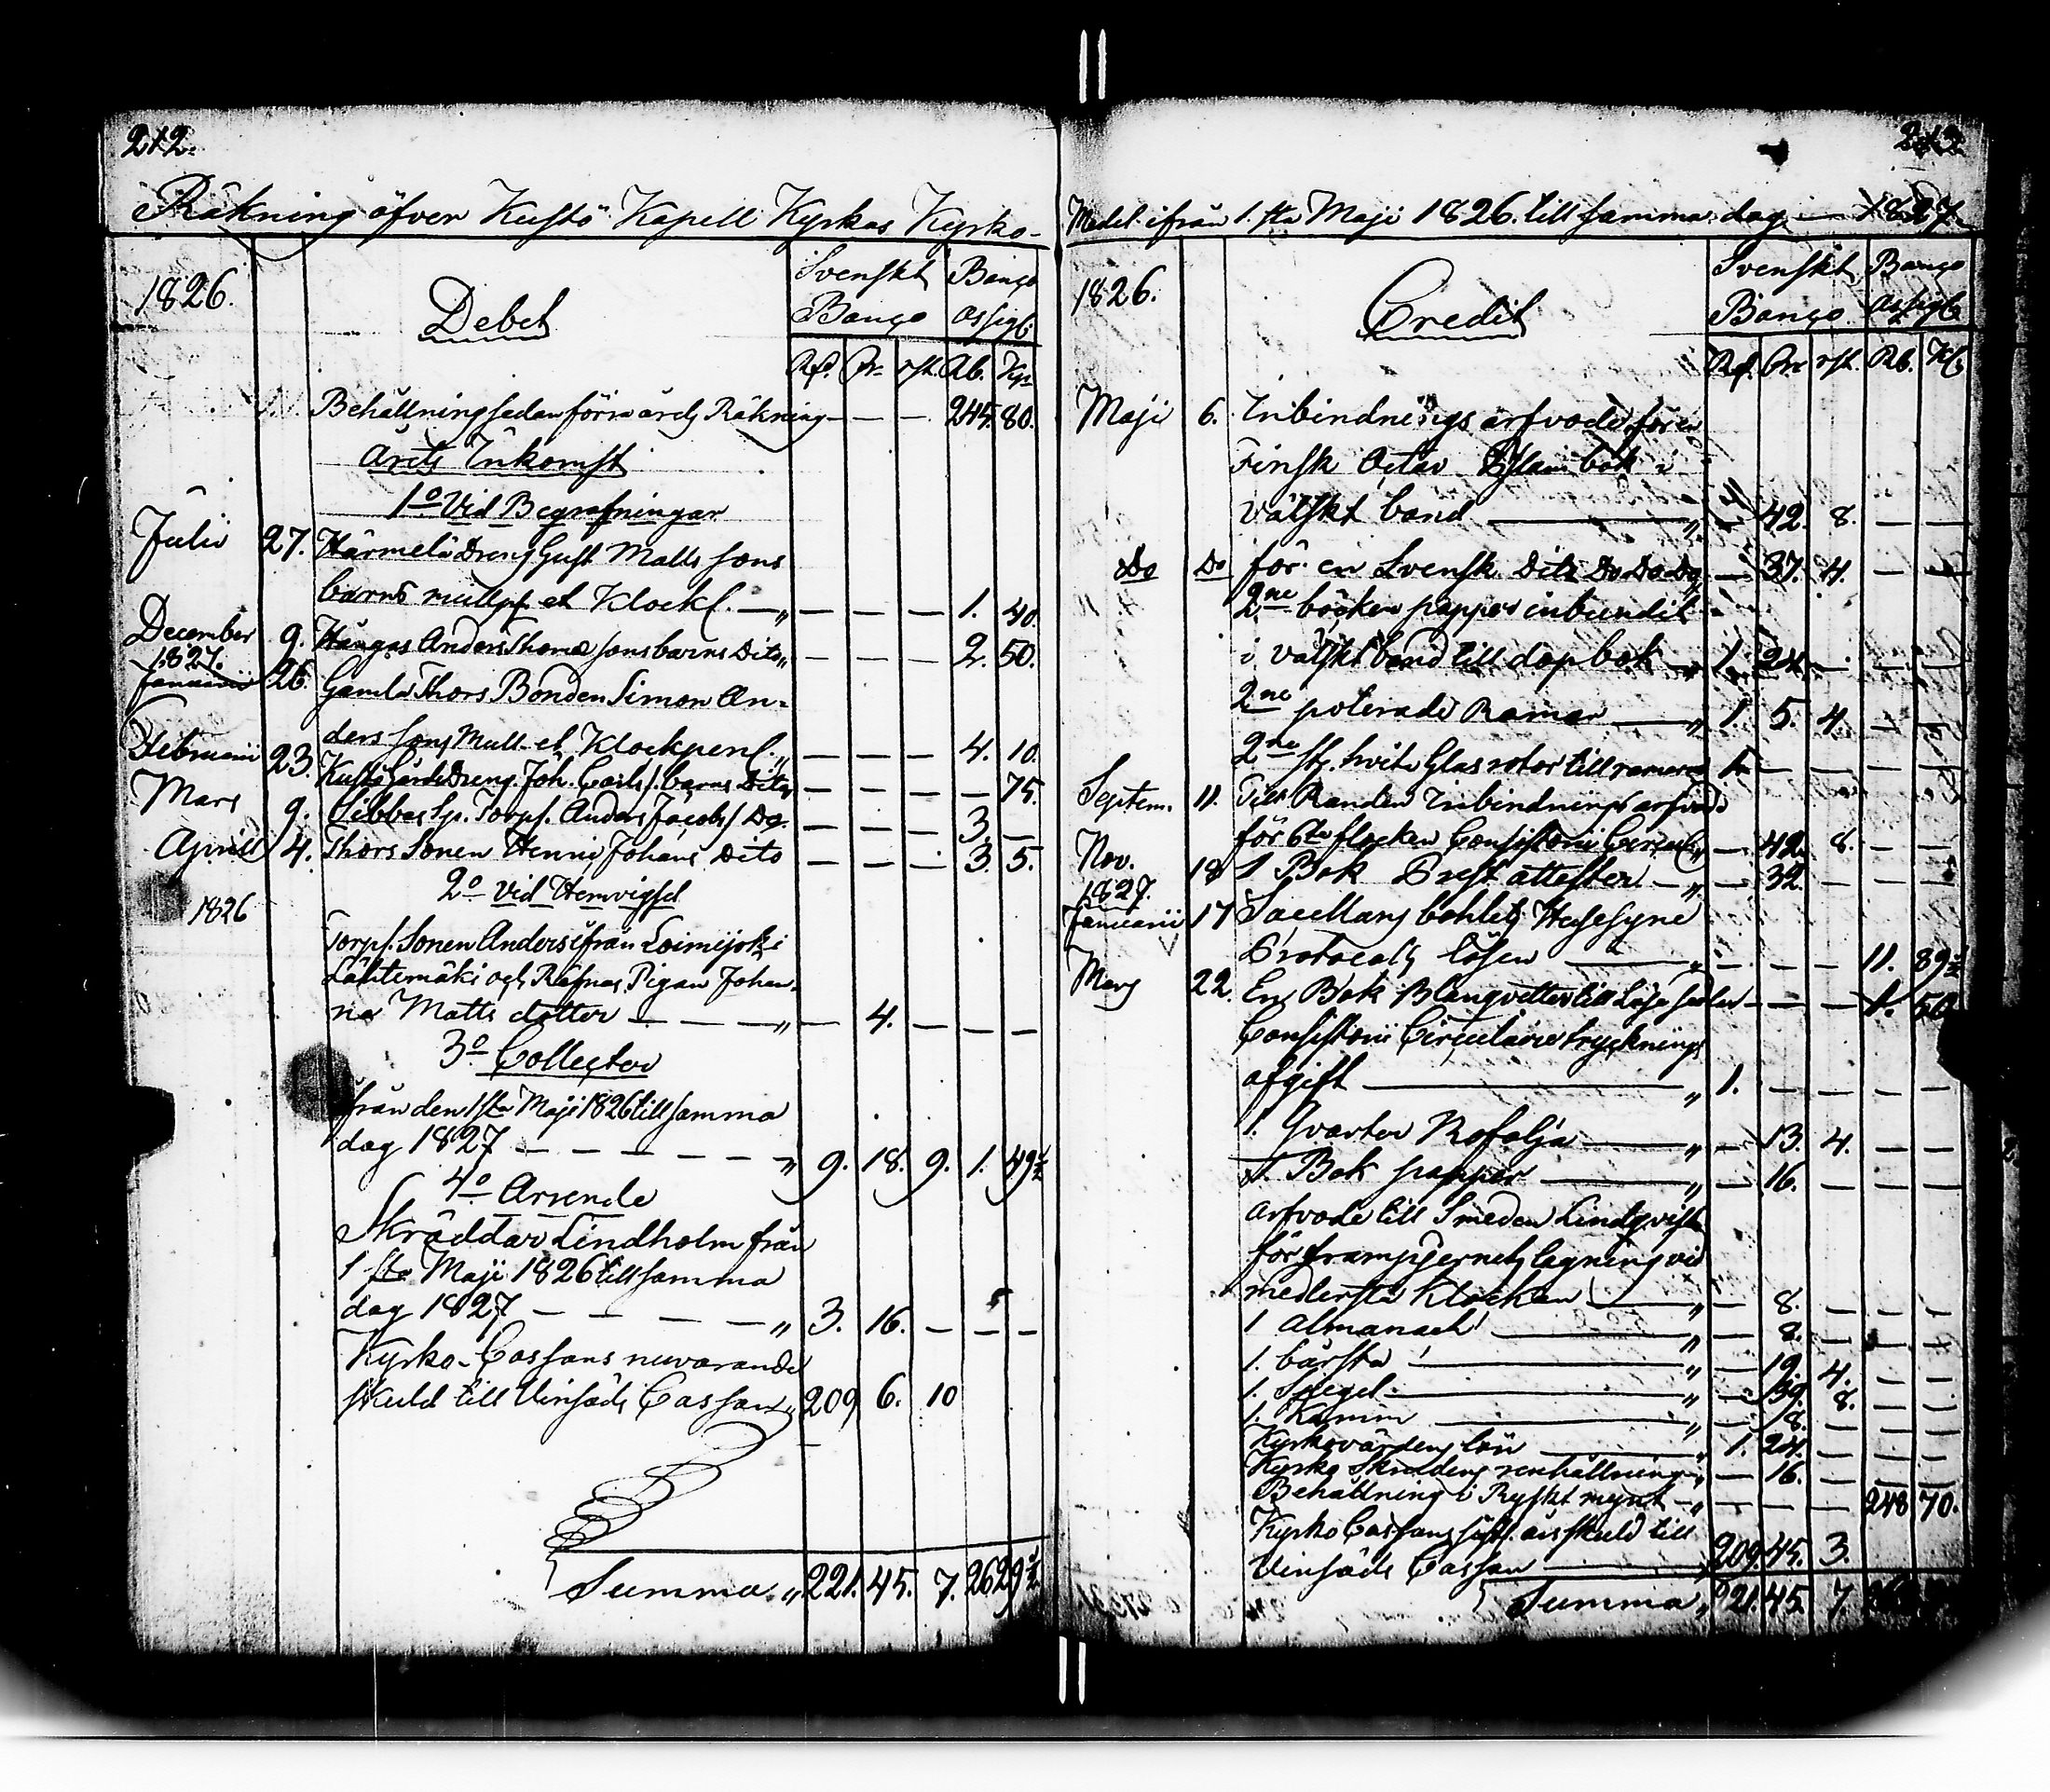 212.
Räkning öfver Kustö Kapell Kyrkas Kyrko-
1826.
Debet
Svenskt Banco
Banco assigl.
Rd. Sk. rst. Rb. Kop.
Behållning sedan förra årets Räkning — — — 245. 80.
Årets Inkomst
1o Vid Begrafningar
Julii 27. Härmelä Dreng Gust Matts sons
barns mullp. et Klockp. — „ — — — 1. 40.
December 9. Hångas Anders Thomæ sons barns Dito „ — — — 2. 50.
1827.
Januarii 26. Gamla Thors Bonden Simon An-
ders sons Mull- et Klockpen. „ — — — 4. 10.
Februarii 23. Kustö Gårds Dreng Joh. Carls s. barns Dito — — — — 75.
Mars 9. Sibbes Sp. Torp. Anders Jacobs s. Do. — — — 3. —
Aprill 4. Thors Sonen Henric Johans Dito — — — 3. 5.
2o Vid Hemvigsel
1826
Torps. Sonen Anders ifrån Loimijoki
Lähtemäki och Räfnäs Pigan Johan-
na Matts dotter — — — „ — 4. — — —
3o Collecter
från den 1sta Maji 1826 till samma
dag 1827 — — — — — „ 9. 18. 9. 1. 49½
4o Arrende
Skräddar Lindholm från
1sta Maji 1826 till samma
dag 1827 — — — — „ 3. 16. — — —
Kyrko-Cassans nuvarande
skuld till Vinsäds Cassan „ 209 6. 10
Summa „ 221. 45. 7. 262 9½
212
Medel ifrån 1.sta Maji 1826 till samma dag — 1827.
1826.
Credit
Svenskt Banco
Banco assigl.
Rd. Sk. rst. Rb. Kop.
Maji 6. Inbindnings arfvode för en
Finsk Octav Psalmbok i
välskt band — „ — 42. 8. — —
Do Do för en Svensk Dito Do Do Do — 37. 4. — —
2ne böcker papper inbundit
i välskt band till dopbok — „ 1. 24. — — —
2ne polerade Ramar — „ 1. 5. 4. — —
2ne st. hvita Glas rutor till ramarne 1. — — — —
Septem. 11. Till Randen Inbindnings arfvode
för 6te flocken Consistorii Circul. „ — 42. 8. — —
Nov. 18 1 Bok Prest attester — „ — 32. — — —
1827.
Januarii 17 Sacellans bohlets Husesyne
Protocolls lösen — „ — — — 11. 89½
Mars 22. En Bok Blanqvetter till Lösa sedlar — — — 1. 50
Consistorii Circulairers trycknings
afgift — „ 1. — — — —
1. Qvarter Rofolja — „ — 13. 4. — —
1. Bok papper — „ — 16. — — —
Arfvode till Smeden Lindqvist
för jernets lagning vid
medlersta Klockan — „ — 8. — — —
1 Almanach — „ — 8. — — —
1. bårsta — „ — 19. 4. — —
1. Spegel — „ — 39. 8. — —
1. Kamm — „ — 8. — — —
Kyrkovärdens lön — „ 1. 24. — — —
Kyrko Skrudens renhållning „ — 16. — — —
Behållning i Ryskt mynt — „ — — — 248 70.
Kyrko Cassans sistl. års skuld till
Vinsäds Cassan — 209. 45. 3.
Summa „ 221. 45. 7.